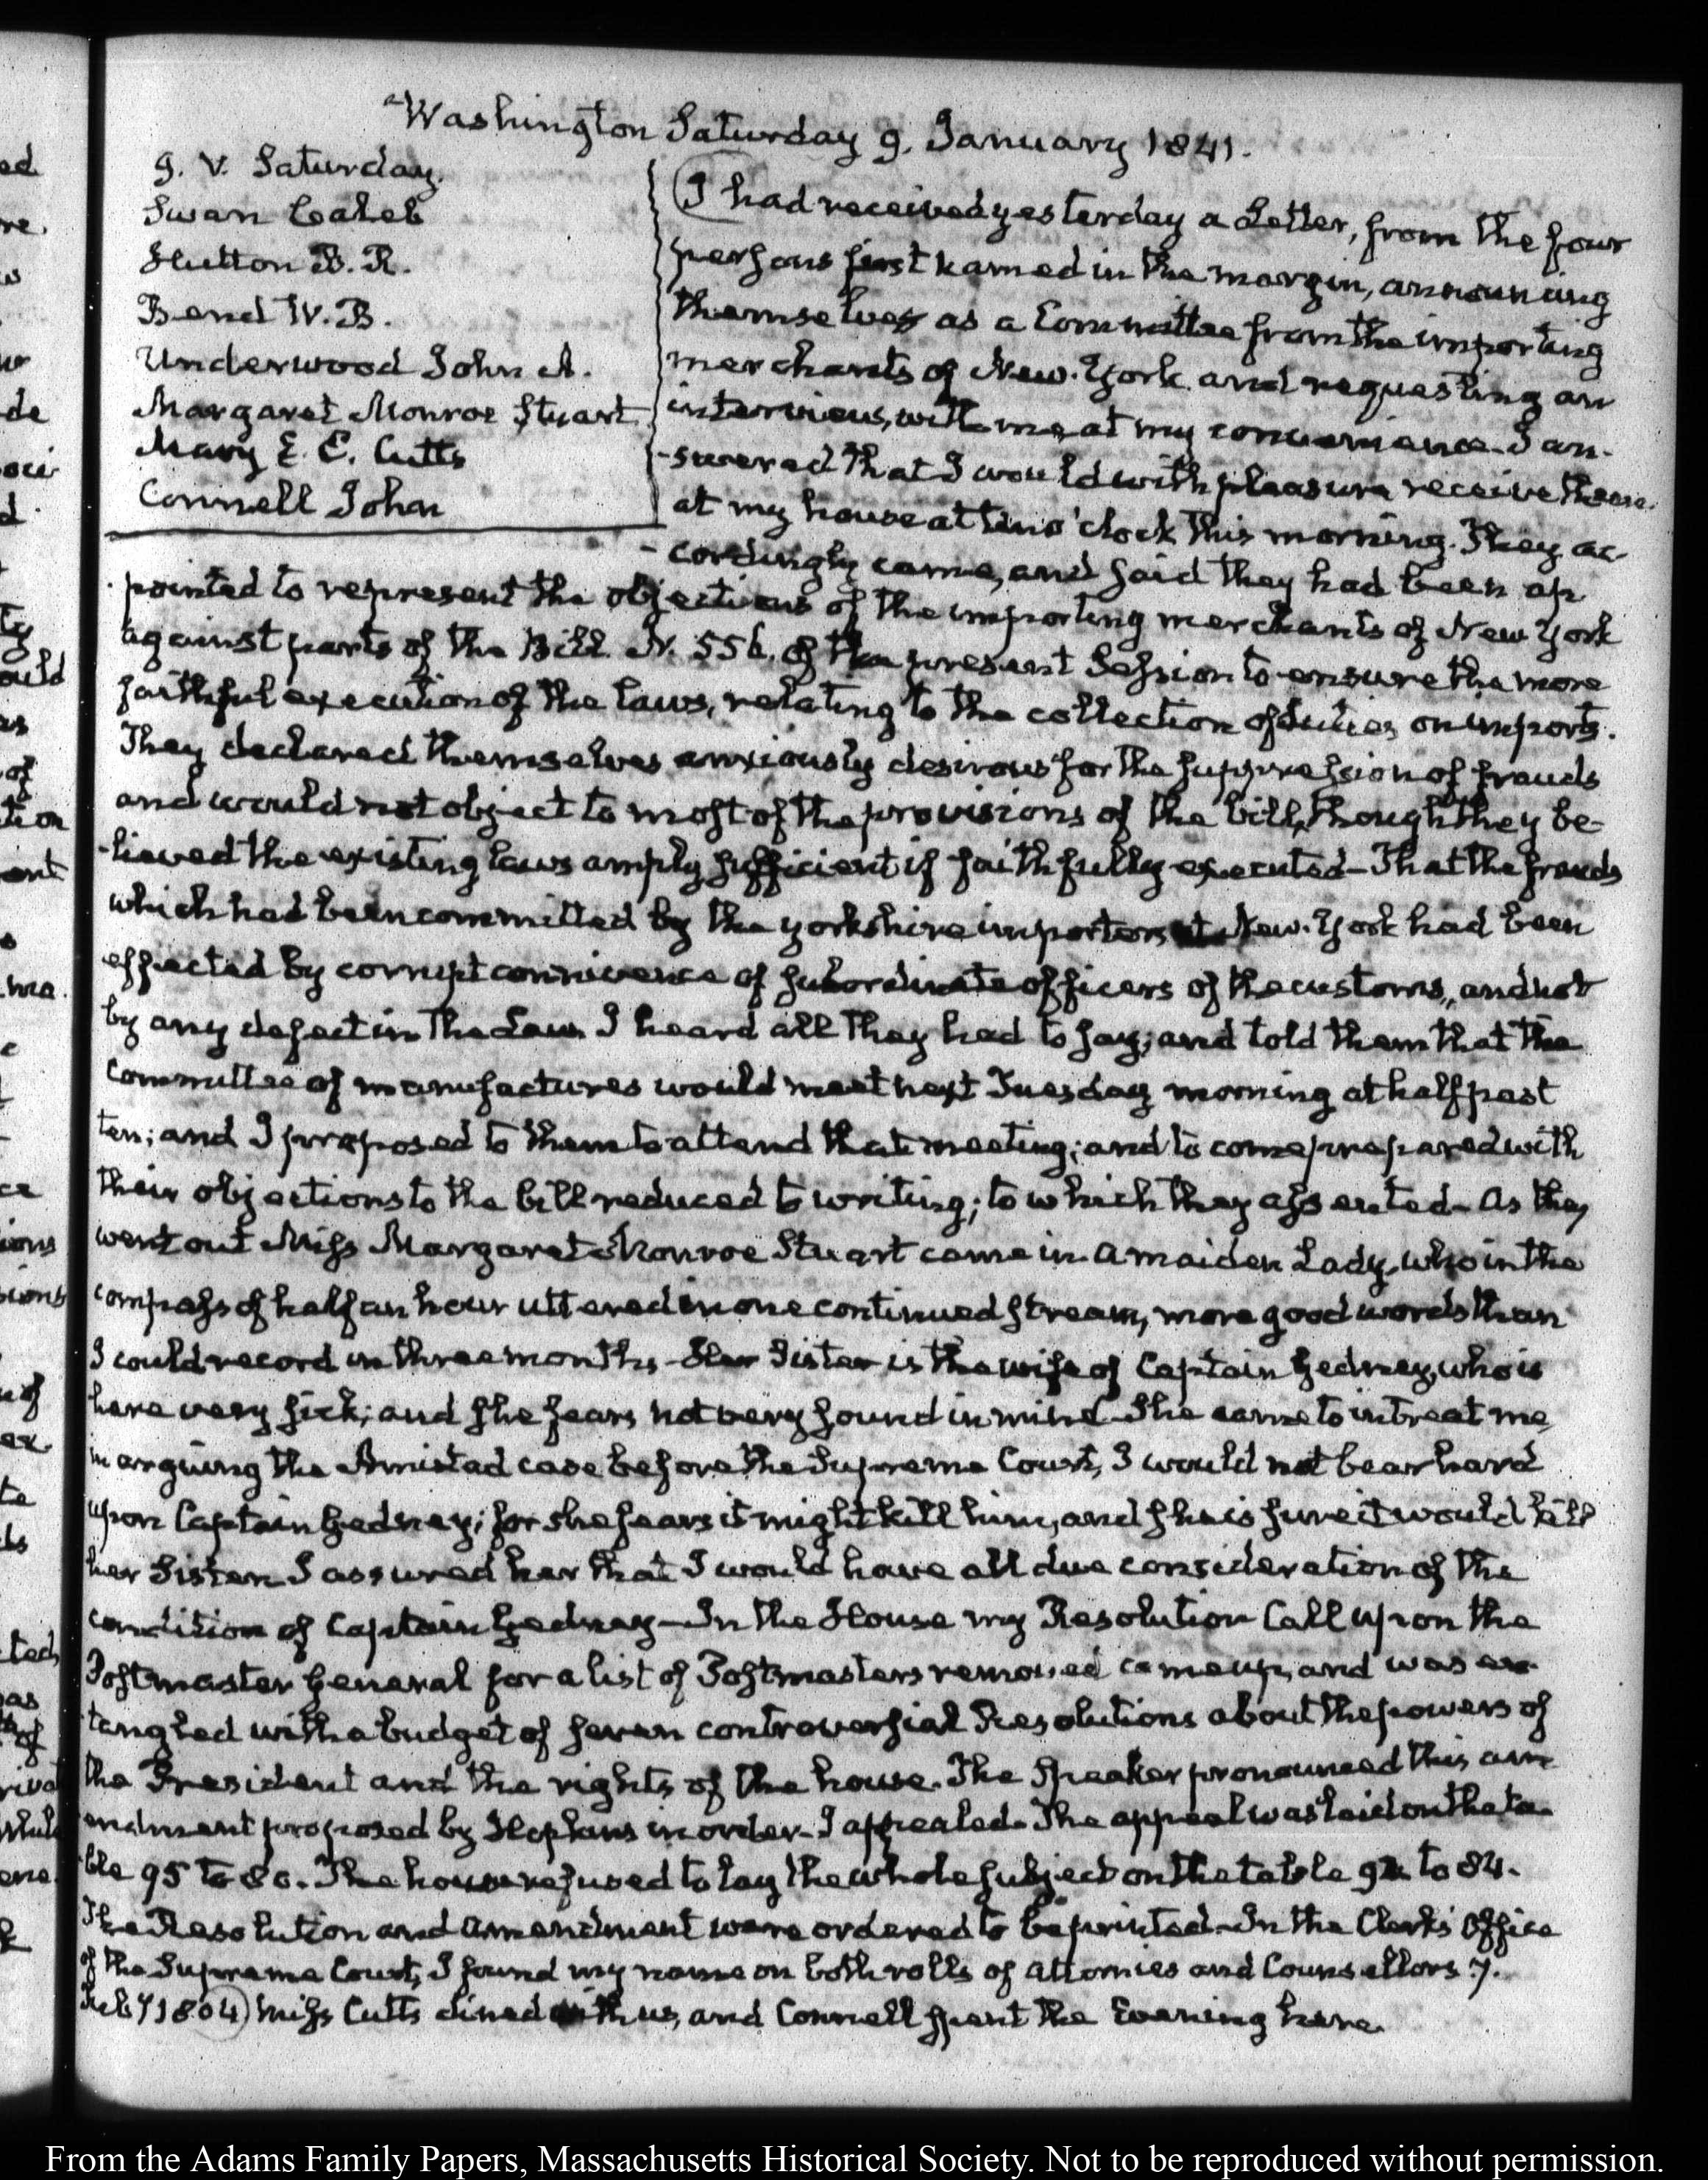 Washington Saturday 9. January 1841.
9. V. Saturday.
Swan Caleb
Hutton B. R.
Bend W. B.
Underwood John A.
Margaret Monroe Stuart
Mary E. E. Cutts
Connell John
I had received yesterday a Letter, from the four
persons first named in the margin, announcing
themselves as a Committee from the importing
merchants of New-York and requesting an
interview, with me, at my convenience. I an-
-swered that I would with pleasure receive them
at my house at ten o'clock this morning. They ac-
-cordingly came, and said they had been ap
pointed to represent the objections of the importing merchants of New York
against parts of the Bill. N. 556. of the present Session to ensure the more
faithful execution of the laws, relating to the collection of duties on imports.
They declared themselves anxiously desirous for the suppression of frauds
and would not object to most of the provisions of the bill, though they be-
-lieved the existing laws amply sufficient if faithfully executed—That the frauds
which had been committed by the yorkshire importers at New-York had been
effected by corrupt connivance of subordinate officers of the customs, and not
by any defect in the Law. I heard all they had to say; and told them that the
Committee of manufactures would meet next Tuesday morning at half past
ten; and I proposed to them to attend that meeting; and to come prepared with
their objections to the bill reduced to writing; to which they assented—As they
went out Miss Margaret Monroe Stuart came in a maiden Lady, who in the
compass of half an hour uttered in one continued stream, more good words than
I could record in three months—Her Sister is the wife of Captain Gedney, who is
here very sick; and she fears, not very sound in mind—She came to intreat me,
in arguing the Amistad case before the Supreme Court, I would not bear hard
upon Captain Gedney; for she fears it might kill him, and she is sure it would kill
her Sister. I assured her that I would have all due consideration of the
condition of Captain Gedney—In the House my Resolution Call upon the
Postmaster General for a list of Postmasters removed came up, and was en-
tangled with a budget of seven controversial Resolutions about the powers of
the President and the rights of the house. The Speaker pronounced this am-
endment proposed by Hopkins in order—I appealed. The appeal was laid on the ta-
ble 95 to 80. The house refused to lay the whole subject on the table 92 to 84.
The Resolution and amendment were ordered to be printed—In the Clerk's Office
of the Supreme Court, I found my name on both rolls of attornies and Counsellors 7.
Feby 1804) Miss Cutts dined with us, and Connell spent the Evening here.
From the Adams Family Papers, Massachusetts Historical Society. Not to be reproduced without permission.